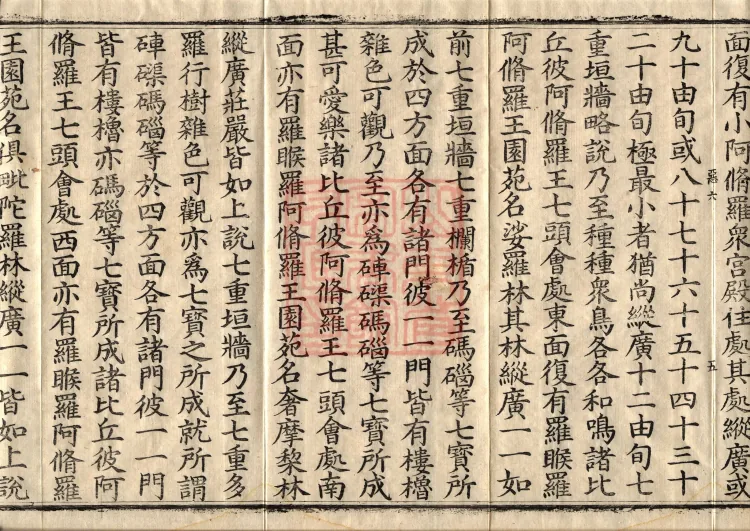 面復有小阿脩羅衆宮殿住處其處縱廣或
九十由旬或八十七十六十五十四十三十
二十由旬極最小者猶尚縱廣十二由旬七
重垣牆略說乃至種種衆鳥各各和鳴諸比
丘彼阿脩羅王七頭會處東面復有羅睺羅
阿脩羅王園苑名娑羅林其林縱廣一一如
前七重垣牆七重欄楯乃至碼碯等七寶所
成於四方面各有諸門彼一一門皆有樓櫓
雜色可觀乃至亦爲硨磲碼碯等七寶所成
甚可愛樂諸比丘彼阿脩羅王七頭會處南
面亦有羅睺羅阿脩羅王園苑名奢摩棃林
縱廣莊嚴皆如上說七重垣牆乃至七重多
羅行樹雜色可觀亦爲七寶之所成就所謂
硨磲碼碯等於四方面各有諸門彼一一門
皆有樓櫓亦碼碯等七寶所成諸比丘彼阿
脩羅王七頭會處西面亦有羅睺羅阿脩羅
王園苑名俱毗陀羅林縱廣一一皆如上說